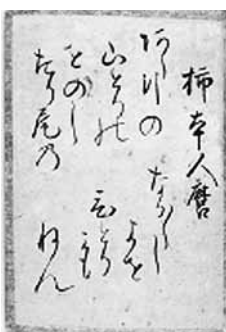 柿本人麿
あし引の
山とりの
をのし
たり尾乃
なか〱し
よを
ひとり
かも
ねん